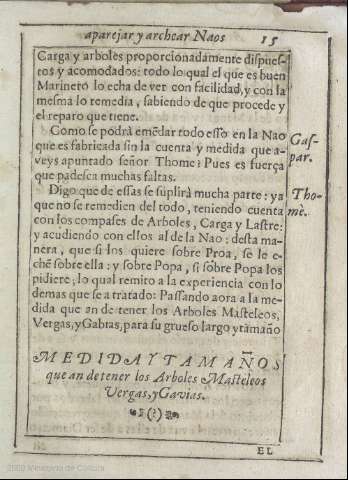 aparejar y archear Naos 15
Carga y arboles proporcionadamente dispues-
tos y acomodados: todo lo qual el que es buen
Marinero lo echa de ver con facilidad, y con la
mesma lo remedia, sabiendo de que procede y
el reparo que tiene.
Como se podrà emẽdar todo esso en la Nao
que es fabricada sin la cuenta y medida que a-
veys apuntado señor Thome? Pues es fuerça
que padesca muchas faltas.
Gas-
par.
Digo que de essas se suplirà mucha parte: ya
que no se remedien del todo, teniendo cuenta
con los compases de Arboles, Carga y Lastre:
y acudiendo con ellos al de la Nao: desta ma-
nera, que si los quiere sobre Proa, se le e-
chẽ sobre ella: y sobre Popa, si sobre Popa los
pidiere; lo qual remito a la experiencia con lo
demas que se a tratado: Passando aora a la me-
dida que an de tener los Arboles Masteleos,
Vergas, y Gabias, para su grueso largo y tamaño
Tho-
mè.
MEDIDA Y TAMAÑOS
que an de tener los Arboles Masteleos
Vergas, y Gavias.
(?)
EL
2009 Ministerio de Cultura